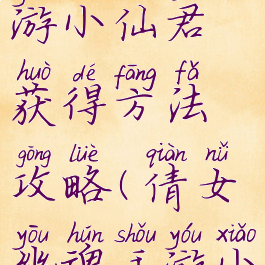 游小仙君
huò dé fāng fǎ
获得方法
gōng lüè qiàn nǚ
攻略(倩女
yōu hún shǒu yóu xiǎo
幽魂手游小